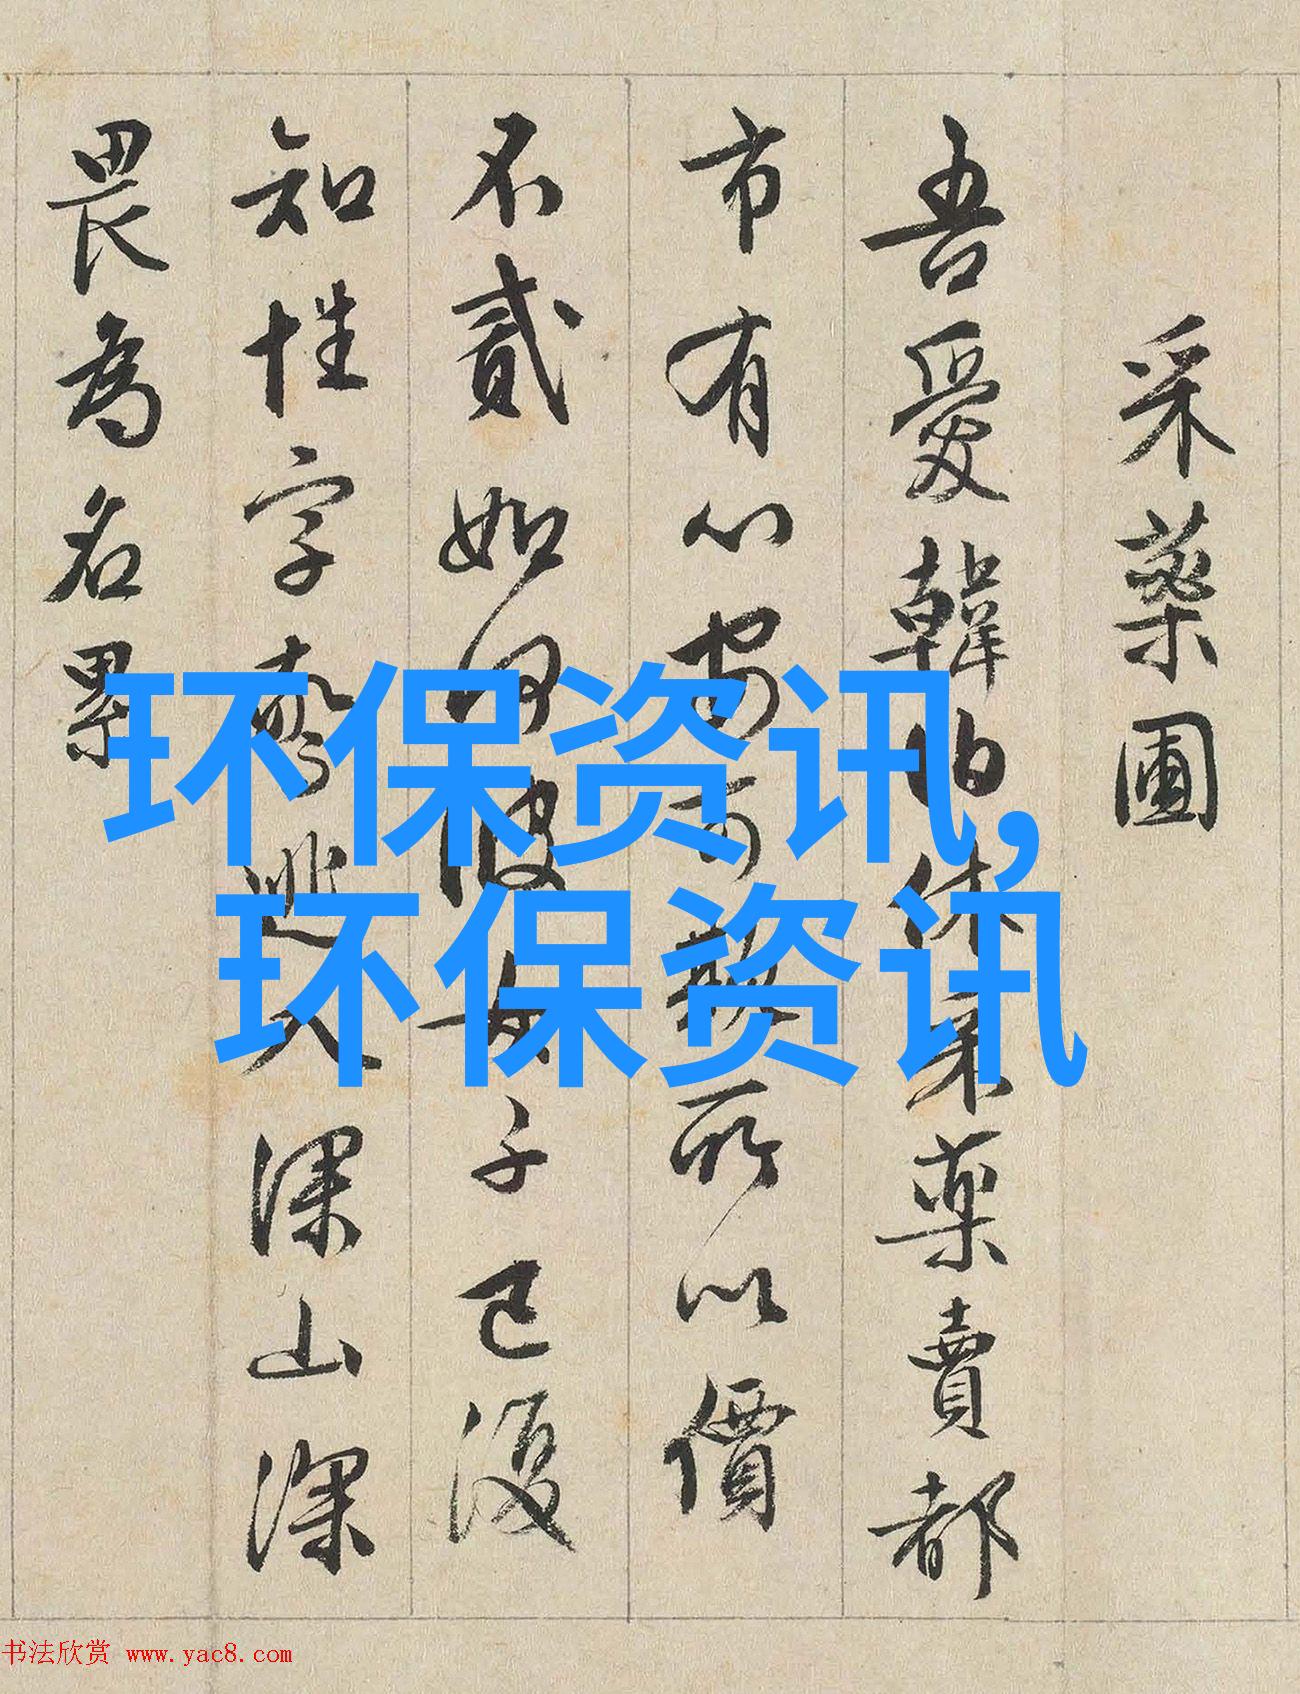 采藥圃
吾愛韓伯休采藥賣都
市有心安可欺所以價
不貳如何彼女子已復
知性字驚逃入深山深
畏為名累
环保资讯,
环保资讯
书法欣赏 www.yac8.com